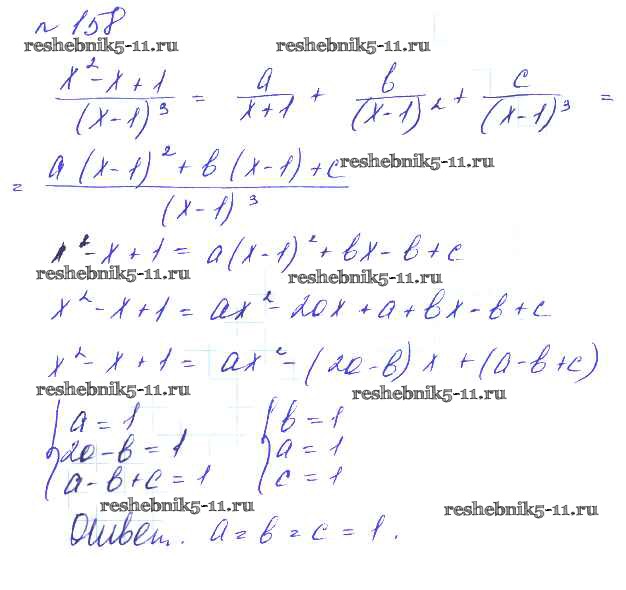 № 158
reshebnik5-11.ru reshebnik5-11.ru
(x² - x + 1)/(x-1)³ = a/(x+1) + b/(x-1)² + c/(x-1)³ =
= (a(x-1)² + b(x-1) + c)/(x-1)³ reshebnik5-11.ru
x² - x + 1 = a(x-1)² + bx - b + c
reshebnik5-11.ru reshebnik5-11.ru
x² - x + 1 = ax² - 2ax + a + bx - b + c
x² - x + 1 = ax² - (2a-b)x + (a-b+c)
reshebnik5-11.ru reshebnik5-11.ru
{ a = 1 { b = 1
2a - b = 1 a = 1
a - b + c = 1 c = 1
reshebnik5-11.ru reshebnik5-11.ru
Ответ. a = b = c = 1.